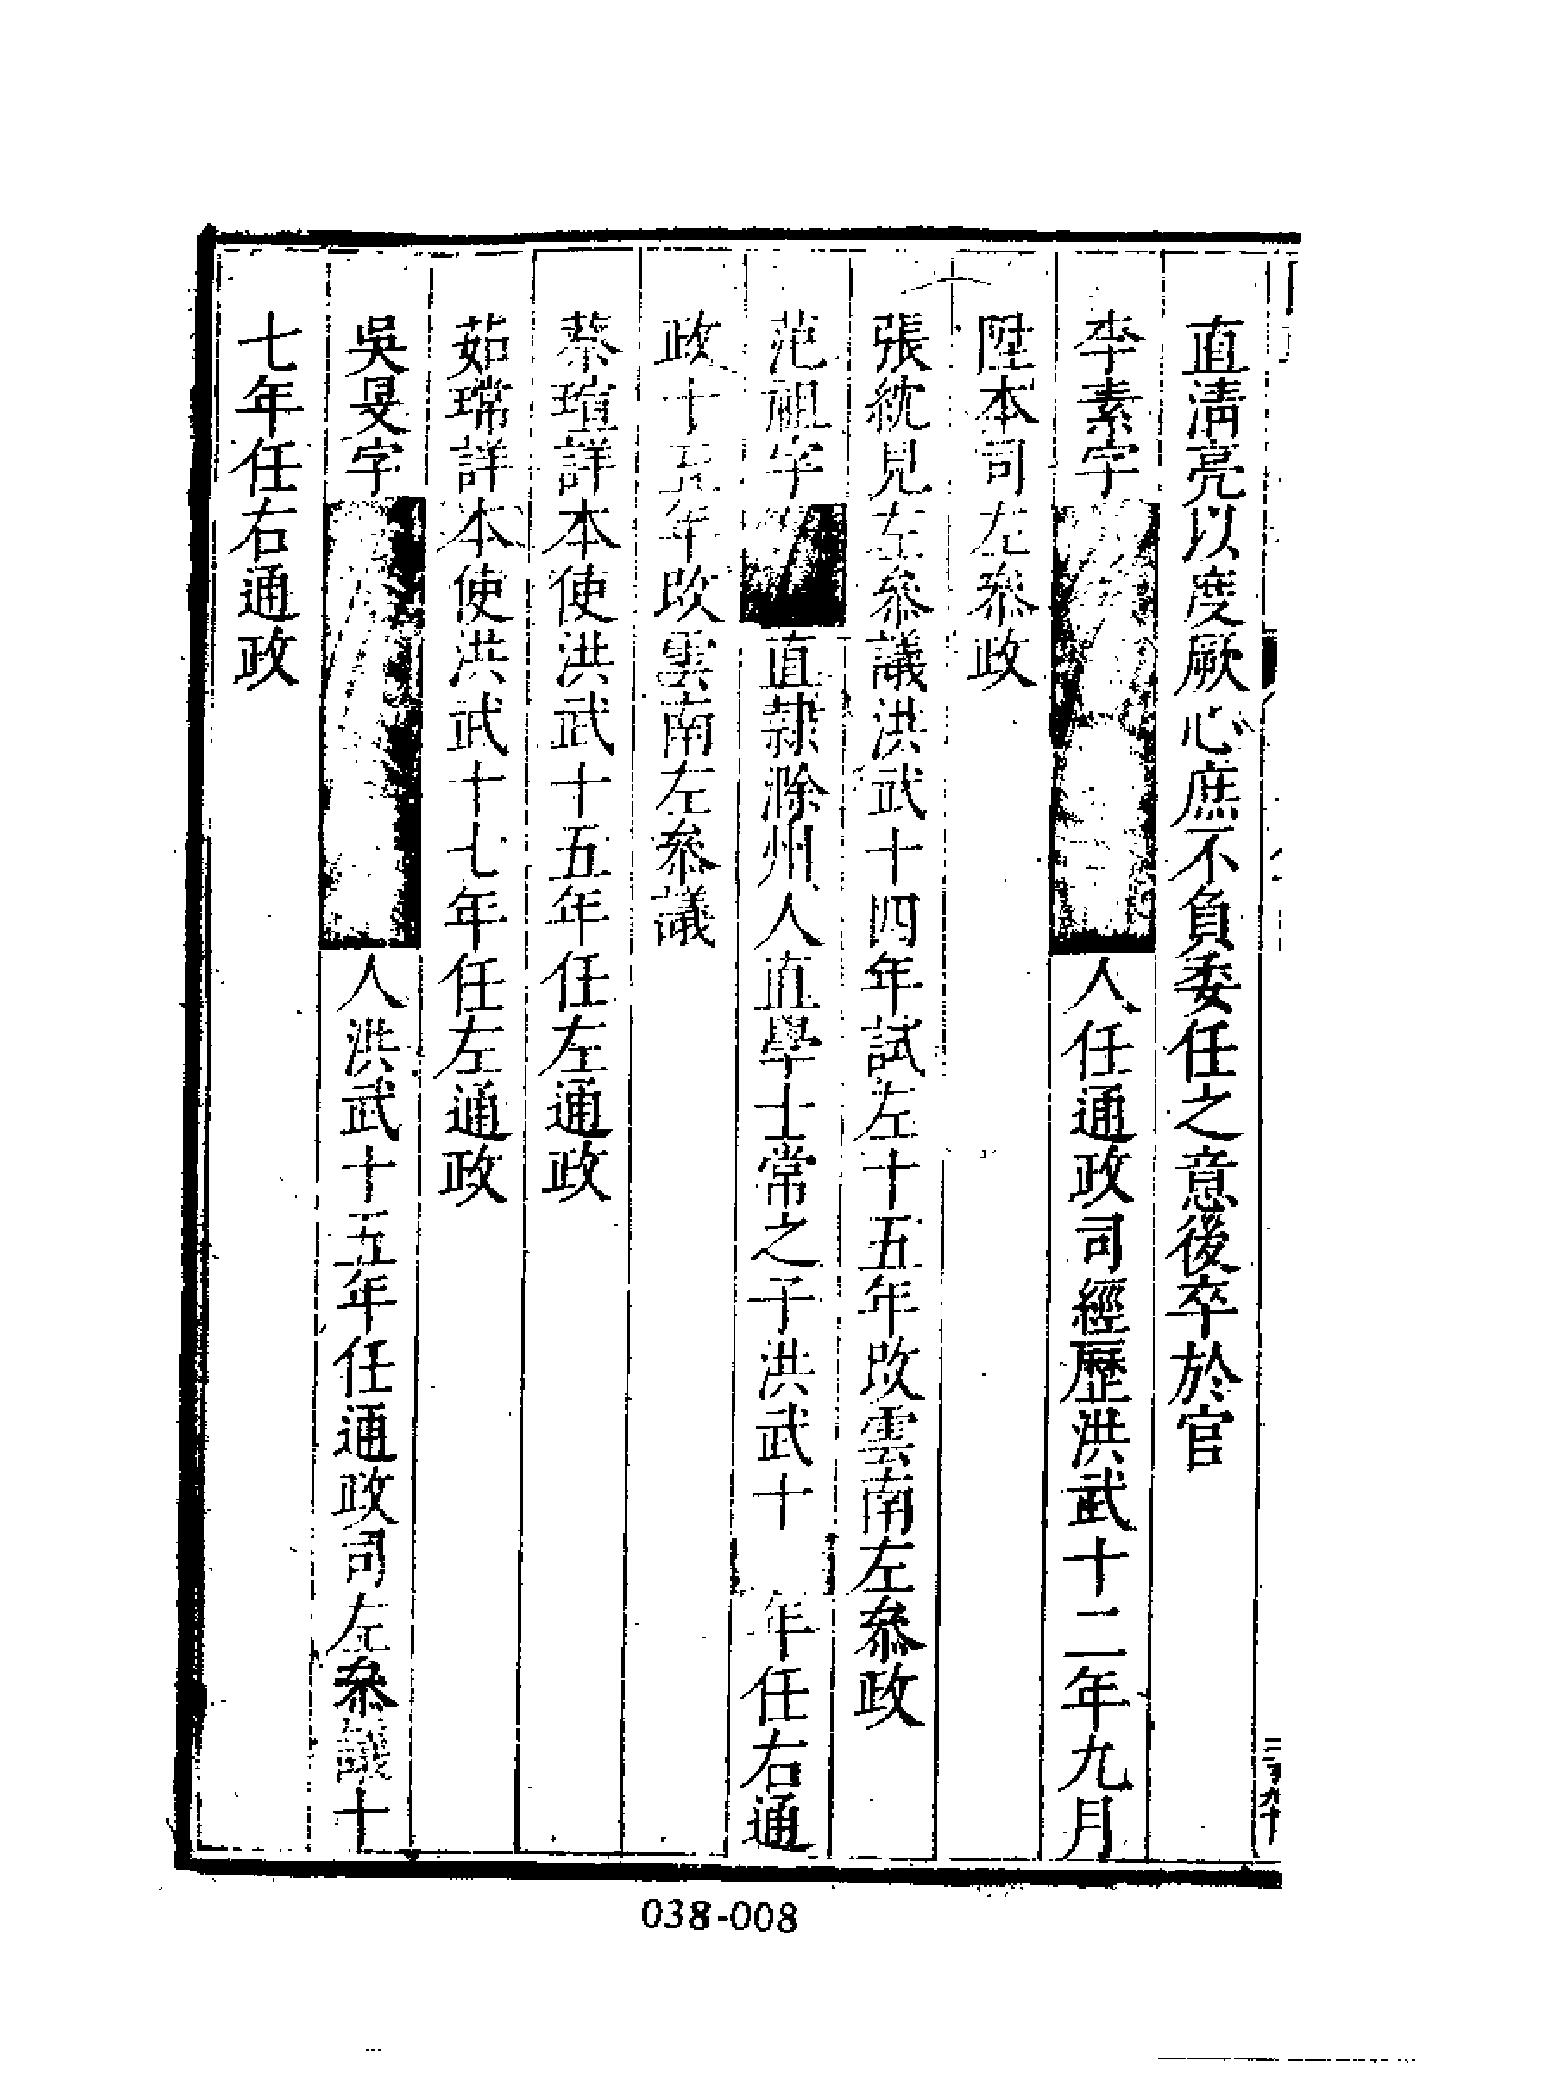 直清亮以度厥心庶不負委任之意後卒於官
李素字
人任通政司經歷洪武十二年九月
陞本司左叅政
張紞見左叅議洪武十四年試左十五年改雲南左叅政
范祖字
直隸滁州人直學士常之子洪武十
年任右通
政十五年改雲南左叅議
蔡瑄詳本使洪武十五年任左通政
茹瑺詳本使洪武十七年任左通政
吳旻字
人洪武十五年任通政司左叅議十
七年任右通政
038-008